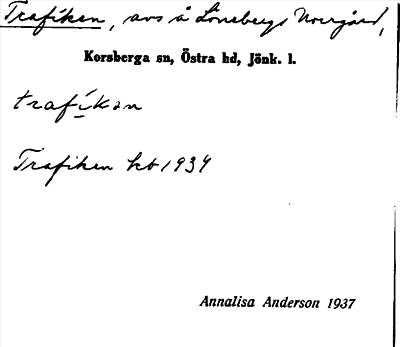 Trafiken, avs å Lönebergs Norrgård,
Korsberga sn, Östra hd, Jönk. l.
trafíkan
Trafiken kb 1934
Annalisa Anderson 1937